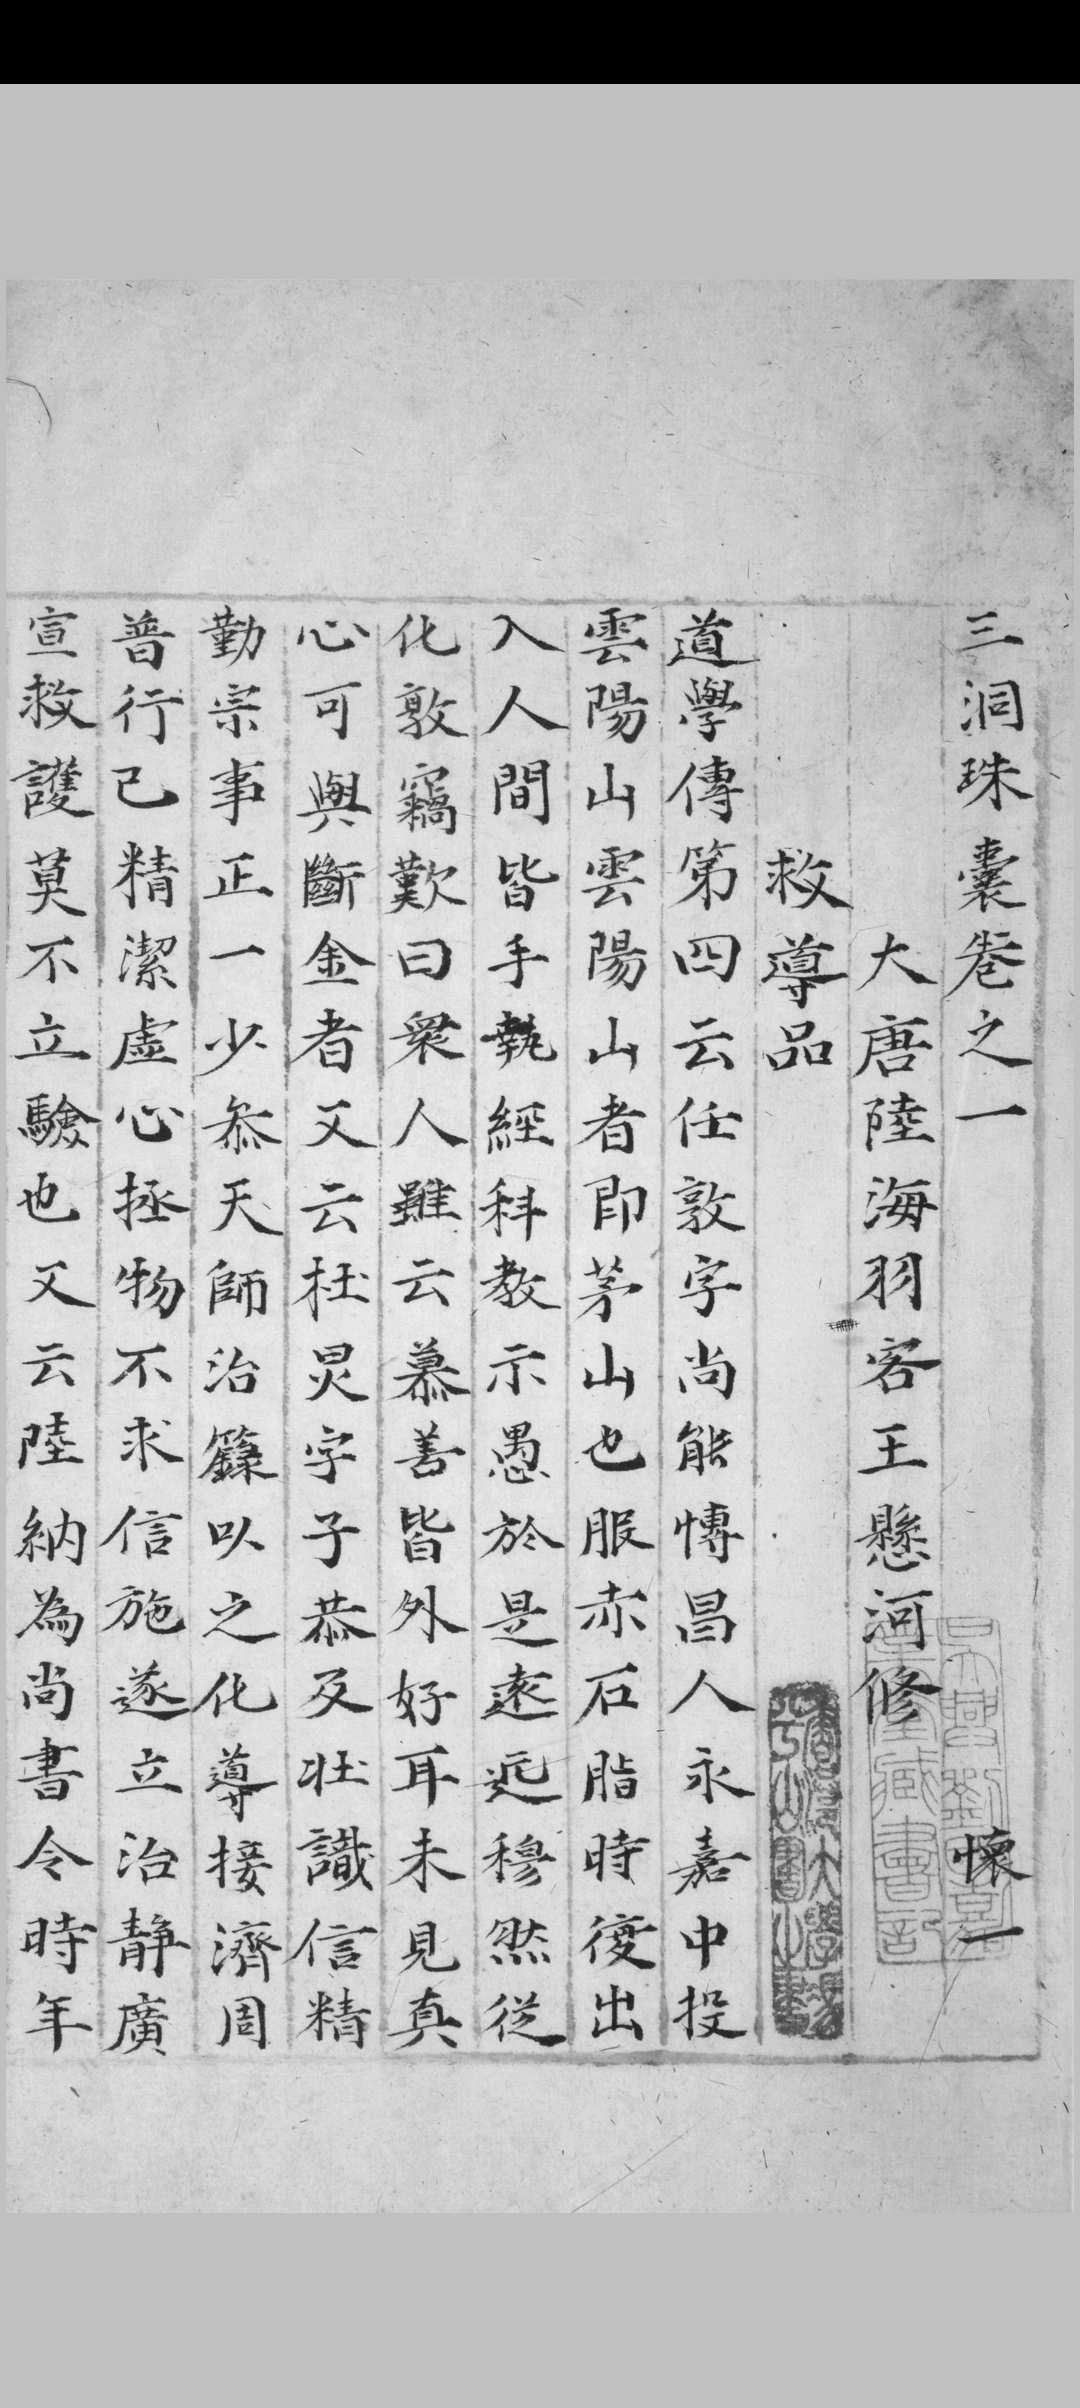 三洞珠囊卷之一 懷一
大唐陸海羽客王懸河修
救導品
道學傳第四云任敦字尚能愽昌人永嘉中投
雲陽山雲陽山者即茅山也服赤石脂時復出
入人間皆手執經科教示愚於是遠近穆然從
化敦竊歎曰衆人雖云慕善皆外好耳未見真
心可與斷金者又云杜炅字子恭及壯識信精
勤宗事正一少叅天師治籙以之化導接濟周
普行己精潔虛心拯物不求信施遂立治静廣
宣救護莫不立驗也又云陸納為尚書令時年